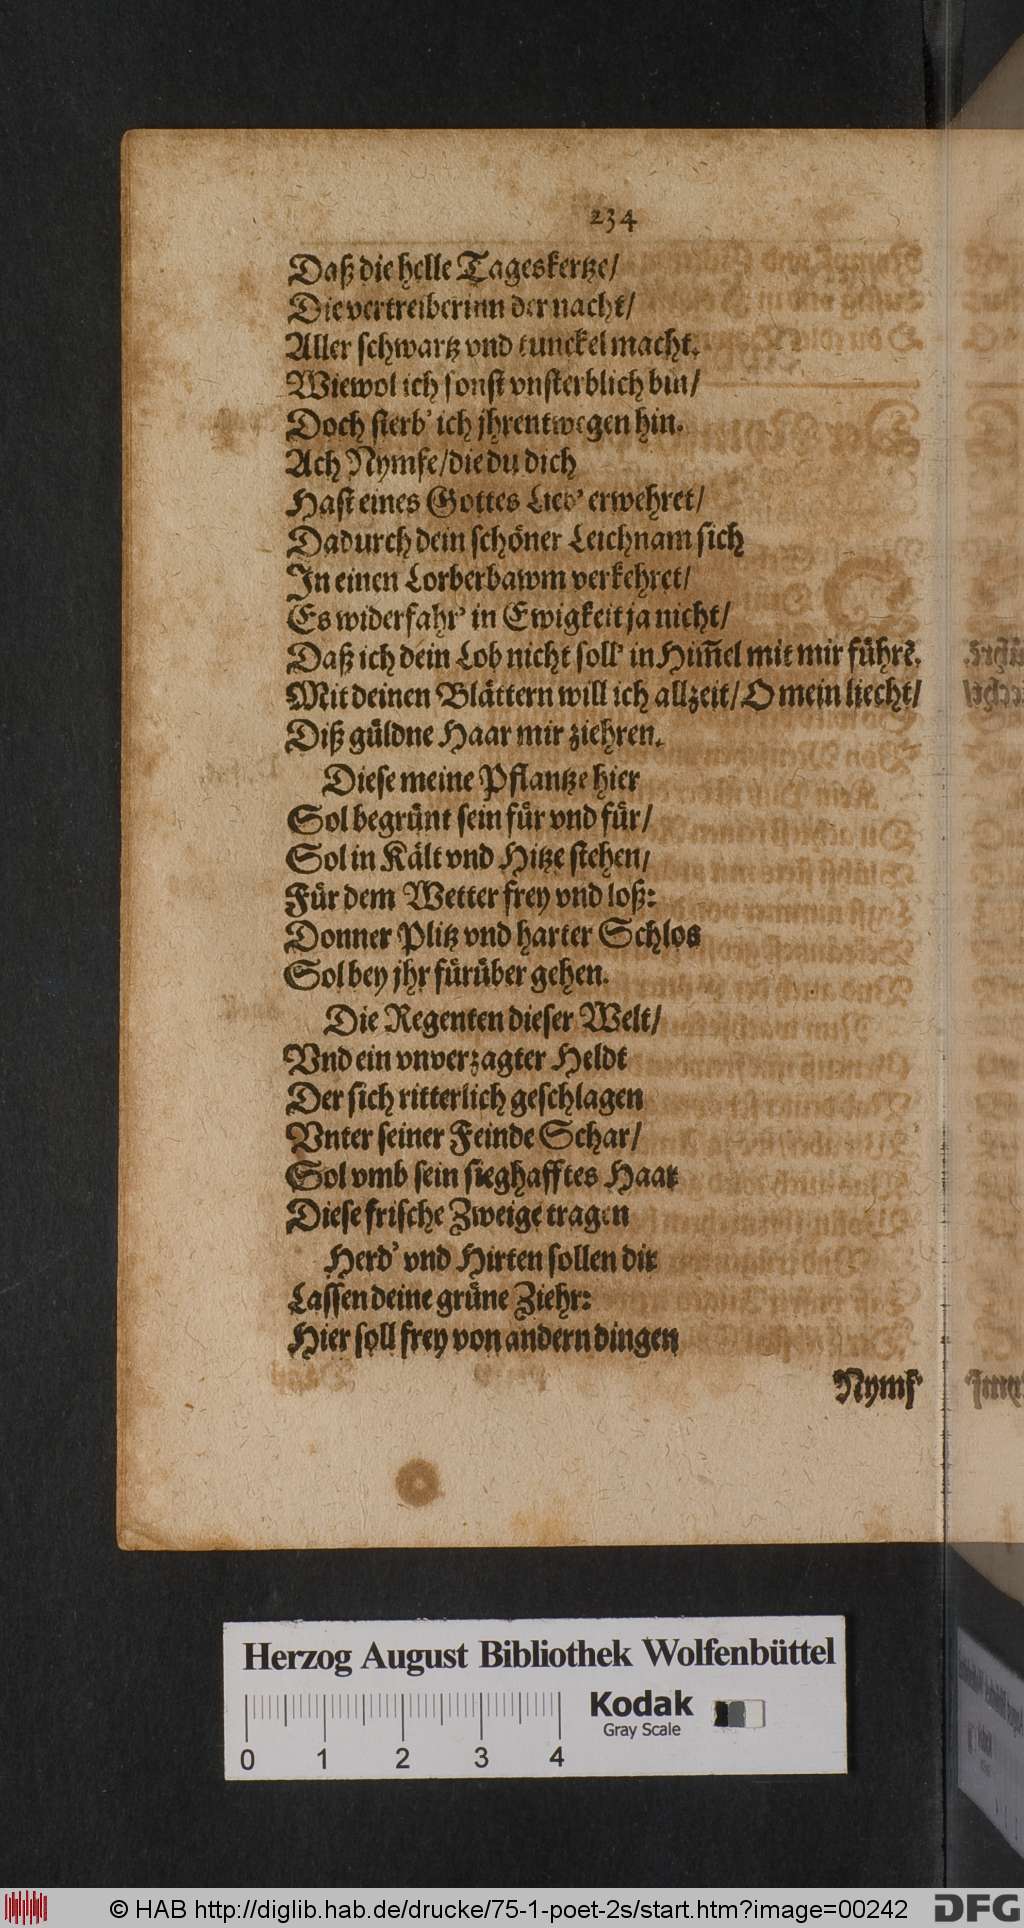 234
Daß die helle Tageskertze/
Die vertreiberinn der nacht/
Aller schwartz vnd tunckel macht.
Wiewol ich sonst vnsterblich bin/
Doch sterb' ich jhrentwegen hin.
Ach Nymfe/die du dich
Hast eines Gottes Lieb' erwehret/
Dadurch dein schöner Leichnam sich
In einen Lorberbawm verkehret/
Es widerfahr' in Ewigkeit ja nicht/
Daß ich dein Lob nicht soll' in Him̅el mit mir führẽ.
Mit deinen Blättern will ich allzeit/O mein liecht/
Diß güldne Haar mir ziehren.
Diese meine Pflantze hier
Sol begrünt sein für vnd für/
Sol in Kält vnd Hitze stehen/
Für dem Wetter frey vnd loß:
Donner Plitz vnd harter Schlos
Sol bey jhr fürüber gehen.
Die Regenten dieser Welt/
Vnd ein vnverzagter Heldt
Der sich ritterlich geschlagen
Vnter seiner Feinde Schar/
Sol vmb sein sieghafftes Haar
Diese frische Zweige tragen
Herd' vnd Hirten sollen dir
Lassen deine grüne Ziehr:
Hier soll frey von andern dingen
Nymf'
Herzog August Bibliothek Wolfenbüttel
Kodak
Gray Scale
0 1 2 3 4
© HAB http://diglib.hab.de/drucke/75-1-poet-2s/start.htm?image=00242
DFG